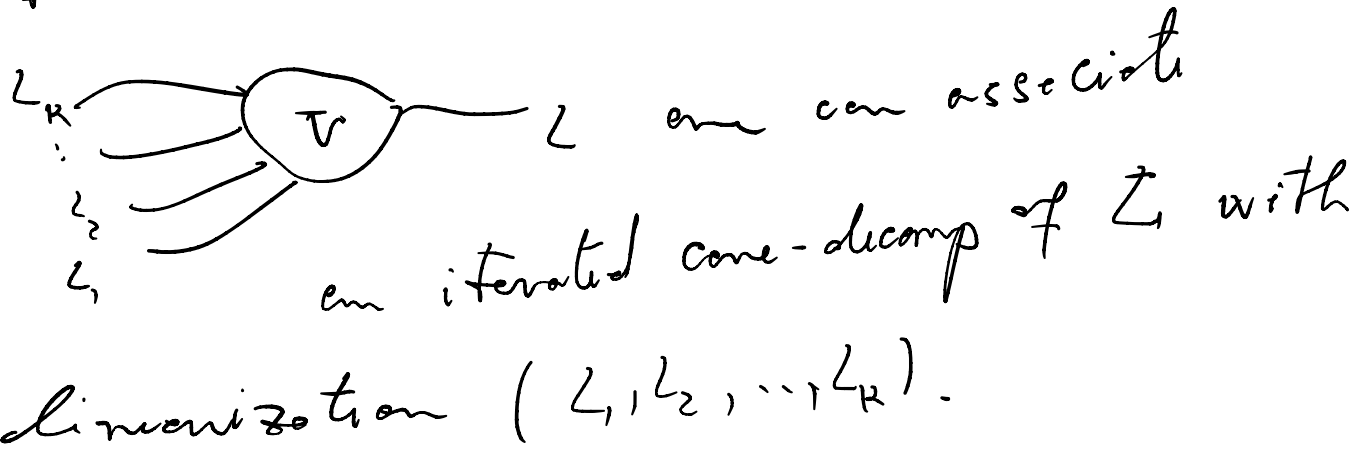 L_k
V L one can associate
⋮
L_2
L_1
an iterated cone-decomp of L, with
linearization (L_1, L_2, ..., L_k).